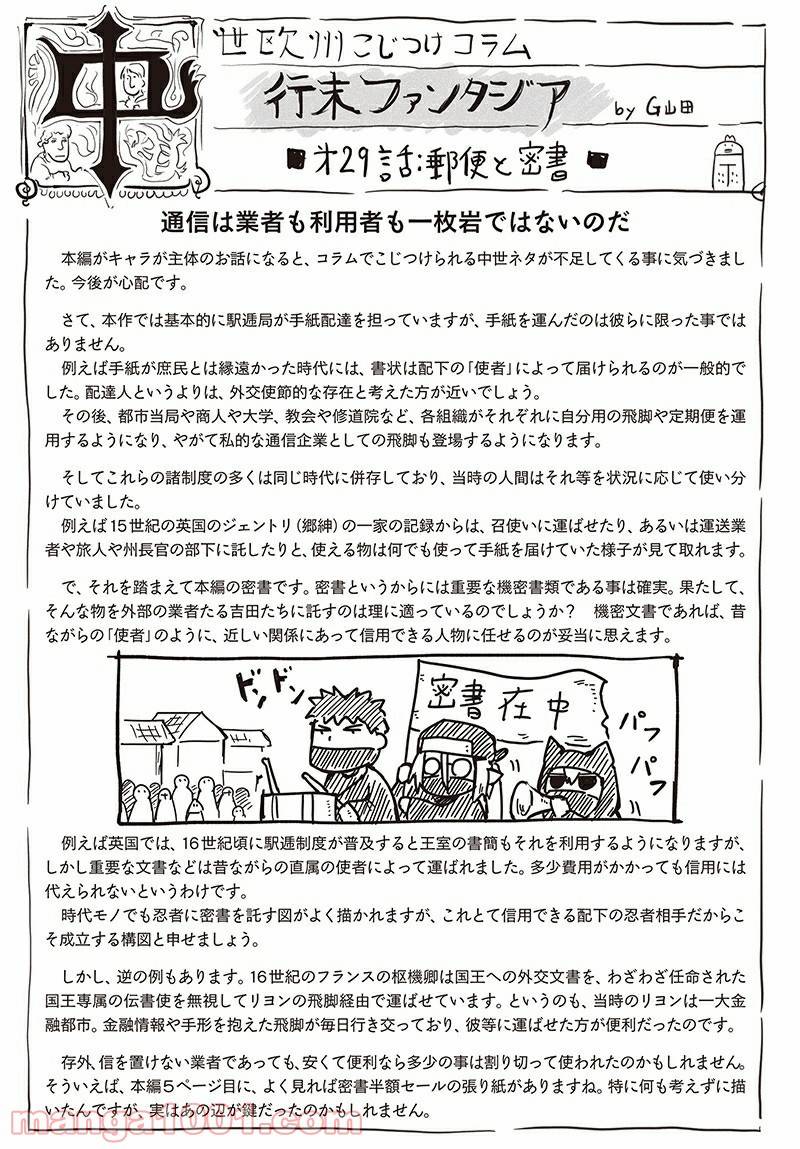 中世欧州こじつけコラム
行末ファンタジア by G山田
■才29話:郵便と密書■
通信は業者も利用者も一枚岩ではないのだ
本編がキャラが主体のお話になると、コラムでこじつけられる中世ネタが不足してくる事に気づきまし
た。今後が心配です。
さて、本作では基本的に駅逓局が手紙配達を担っていますが、手紙を運んだのは彼らに限った事では
ありません。
例えば手紙が庶民とは縁遠かった時代には、書状は配下の「使者」によって届けられるのが一般的で
した。配達人というよりは、外交使節的な存在と考えた方が近いでしょう。
その後、都市当局や商人や大学、教会や修道院など、各組織がそれぞれに自分用の飛脚や定期便を運
用するようになり、やがて私的な通信企業としての飛脚も登場するようになります。
そしてこれらの諸制度の多くは同じ時代に併存しており、当時の人間はそれ等を状況に応じて使い分
けていました。
例えば15世紀の英国のジェントリ(郷紳)の一家の記録からは、召使いに運ばせたり、あるいは運送業
者や旅人や州長官の部下に託したりと、使える物は何でも使って手紙を届けていた様子が見て取れます。
で、それを踏まえて本編の密書です。密書というからには重要な機密書類である事は確実。果たして、
そんな物を外部の業者たる吉田たちに託すのは理に適っているのでしょうか? 機密文書であれば、昔
ながらの「使者」のように、近しい関係にあって信用できる人物に任せるのが妥当に思えます。
ドンドン
密書在中
パフ
パフ
例えば英国では、16世紀頃に駅逓制度が普及すると王室の書簡もそれを利用するようになりますが、
しかし重要な文書などは昔ながらの直属の使者によって運ばれました。多少費用がかかっても信用には
代えられないというわけです。
時代モノでも忍者に密書を託す図がよく描かれますが、これとて信用できる配下の忍者相手だからこ
そ成立する構図と申せましょう。
しかし、逆の例もあります。16世紀のフランスの枢機卿は国王への外交文書を、わざわざ任命された
国王専属の伝書使を無視してリヨンの飛脚経由で運ばせています。というのも、当時のリヨンは一大金
融都市。金融情報や手形を抱えた飛脚が毎日行き交っており、彼等に運ばせた方が便利だったのです。
存外、信を置けない業者であっても、安くて便利なら多少の事は割り切って使われたのかもしれません。
そういえば、本編5ページ目に、よく見れば密書半額セールの張り紙がありますね。特に何も考えずに描
いたんですが、実はあの辺が鍵だったのかもしれません。
manga1001.com